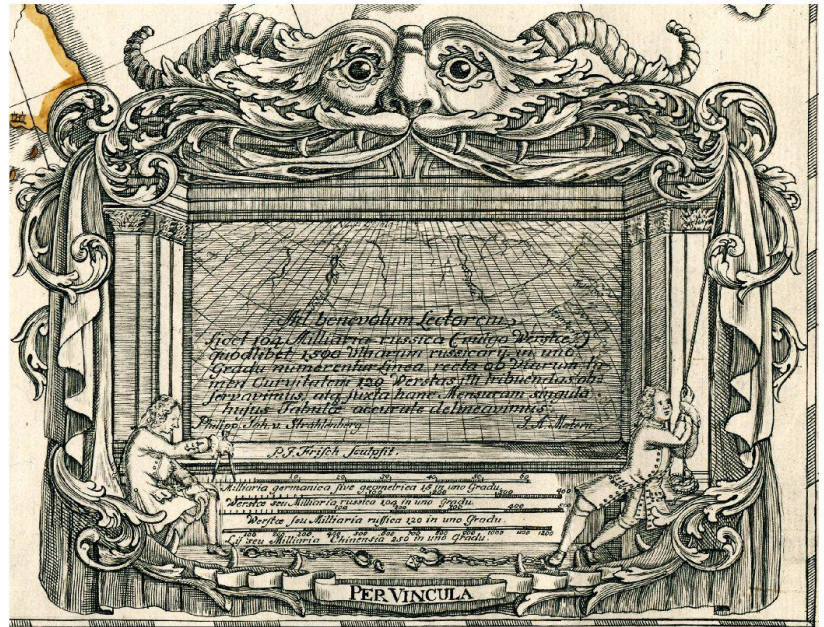 Ad benevolum Lectorem,
licet 104 Milliaria russica (vulgo Werstæ)
quodlibet 1500 Ulnarum russicarũ in uno
Gradu numerentur linea recta ob Viarum ta-
men Curvitatem 120 Werstas
servavimus, atq juxta hanc Mensuram singula
hujus Tabulæ accurate delineavimus.
Philipp Joh. v. Strahlenberg. J. A. Matern.
P. J. Frisch sculpsit.
10 20 30 40 50 60
Milliaria germanica sive geometrica 15 in uno Gradu.
100 200 300 400
Werstæ seu Milliaria russica 104 in uno Gradu.
100 200 300 400 500
Werstæ seu Milliaria russica 120 in uno Gradu.
100 200 300 400 500 600 700 800 900 1000 1100 1200
Lÿ seu Milliaria Chinensia 250 in uno Gradu.
PER VINCULA